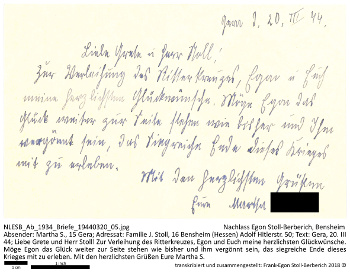 Gera d. 20. III 44.
Liebe Grete u Herr Stoll!
Zur Verleihung des Ritterkreuzes, Egon u Euch
meine herzlichsten Glückwünsche. Möge Egon das
Glück weiter zur Seite stehen wie bisher und ihm
vergönnt sein, das siegreiche Ende dieses Krieges
mit zu erleben.
Mit den herzlichsten Grüßen
Eure Martha
NLESB_Ab_1934_Briefe_19440320_05.jpg Nachlass Egon Stoll-Berberich, Bensheim
Absender: Martha S., 15 Gera; Adressat: Familie J. Stoll, 16 Bensheim (Hessen) Adolf Hitlerstr. 50; Text: Gera, 20. III
44; Liebe Grete und Herr Stoll! Zur Verleihung des Ritterkreuzes, Egon und Euch meine herzlichsten Glückwünsche.
Möge Egon das Glück weiter zur Seite stehen wie bisher und ihm vergönnt sein, das siegreiche Ende dieses
Krieges mit zu erleben. Mit den herzlichsten Grüßen Eure Martha S.
transkribiert und zusammengestellt: Frank-Egon Stoll-Berberich 2018 ©